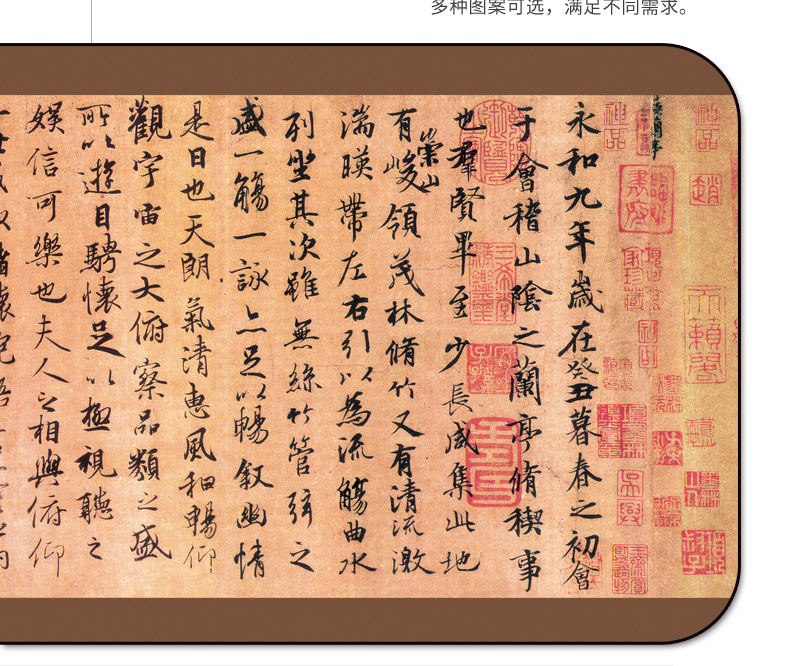 多种图案可选，满足不同需求。
永和九年歲在癸丑暮春之初會
于會稽山陰之蘭亭脩稧事
也群賢畢至少長咸集此地
有崇山峻領茂林脩竹又有清流激
湍暎帶左右引以為流觴曲水
列坐其次雖無絲竹管弦之
盛一觴一詠亦足以暢叙幽情
是日也天朗氣清惠風和暢仰
觀宇宙之大俯察品類之盛
所以遊目騁懷足以極視聽之
娛信可樂也夫人之相與俯仰